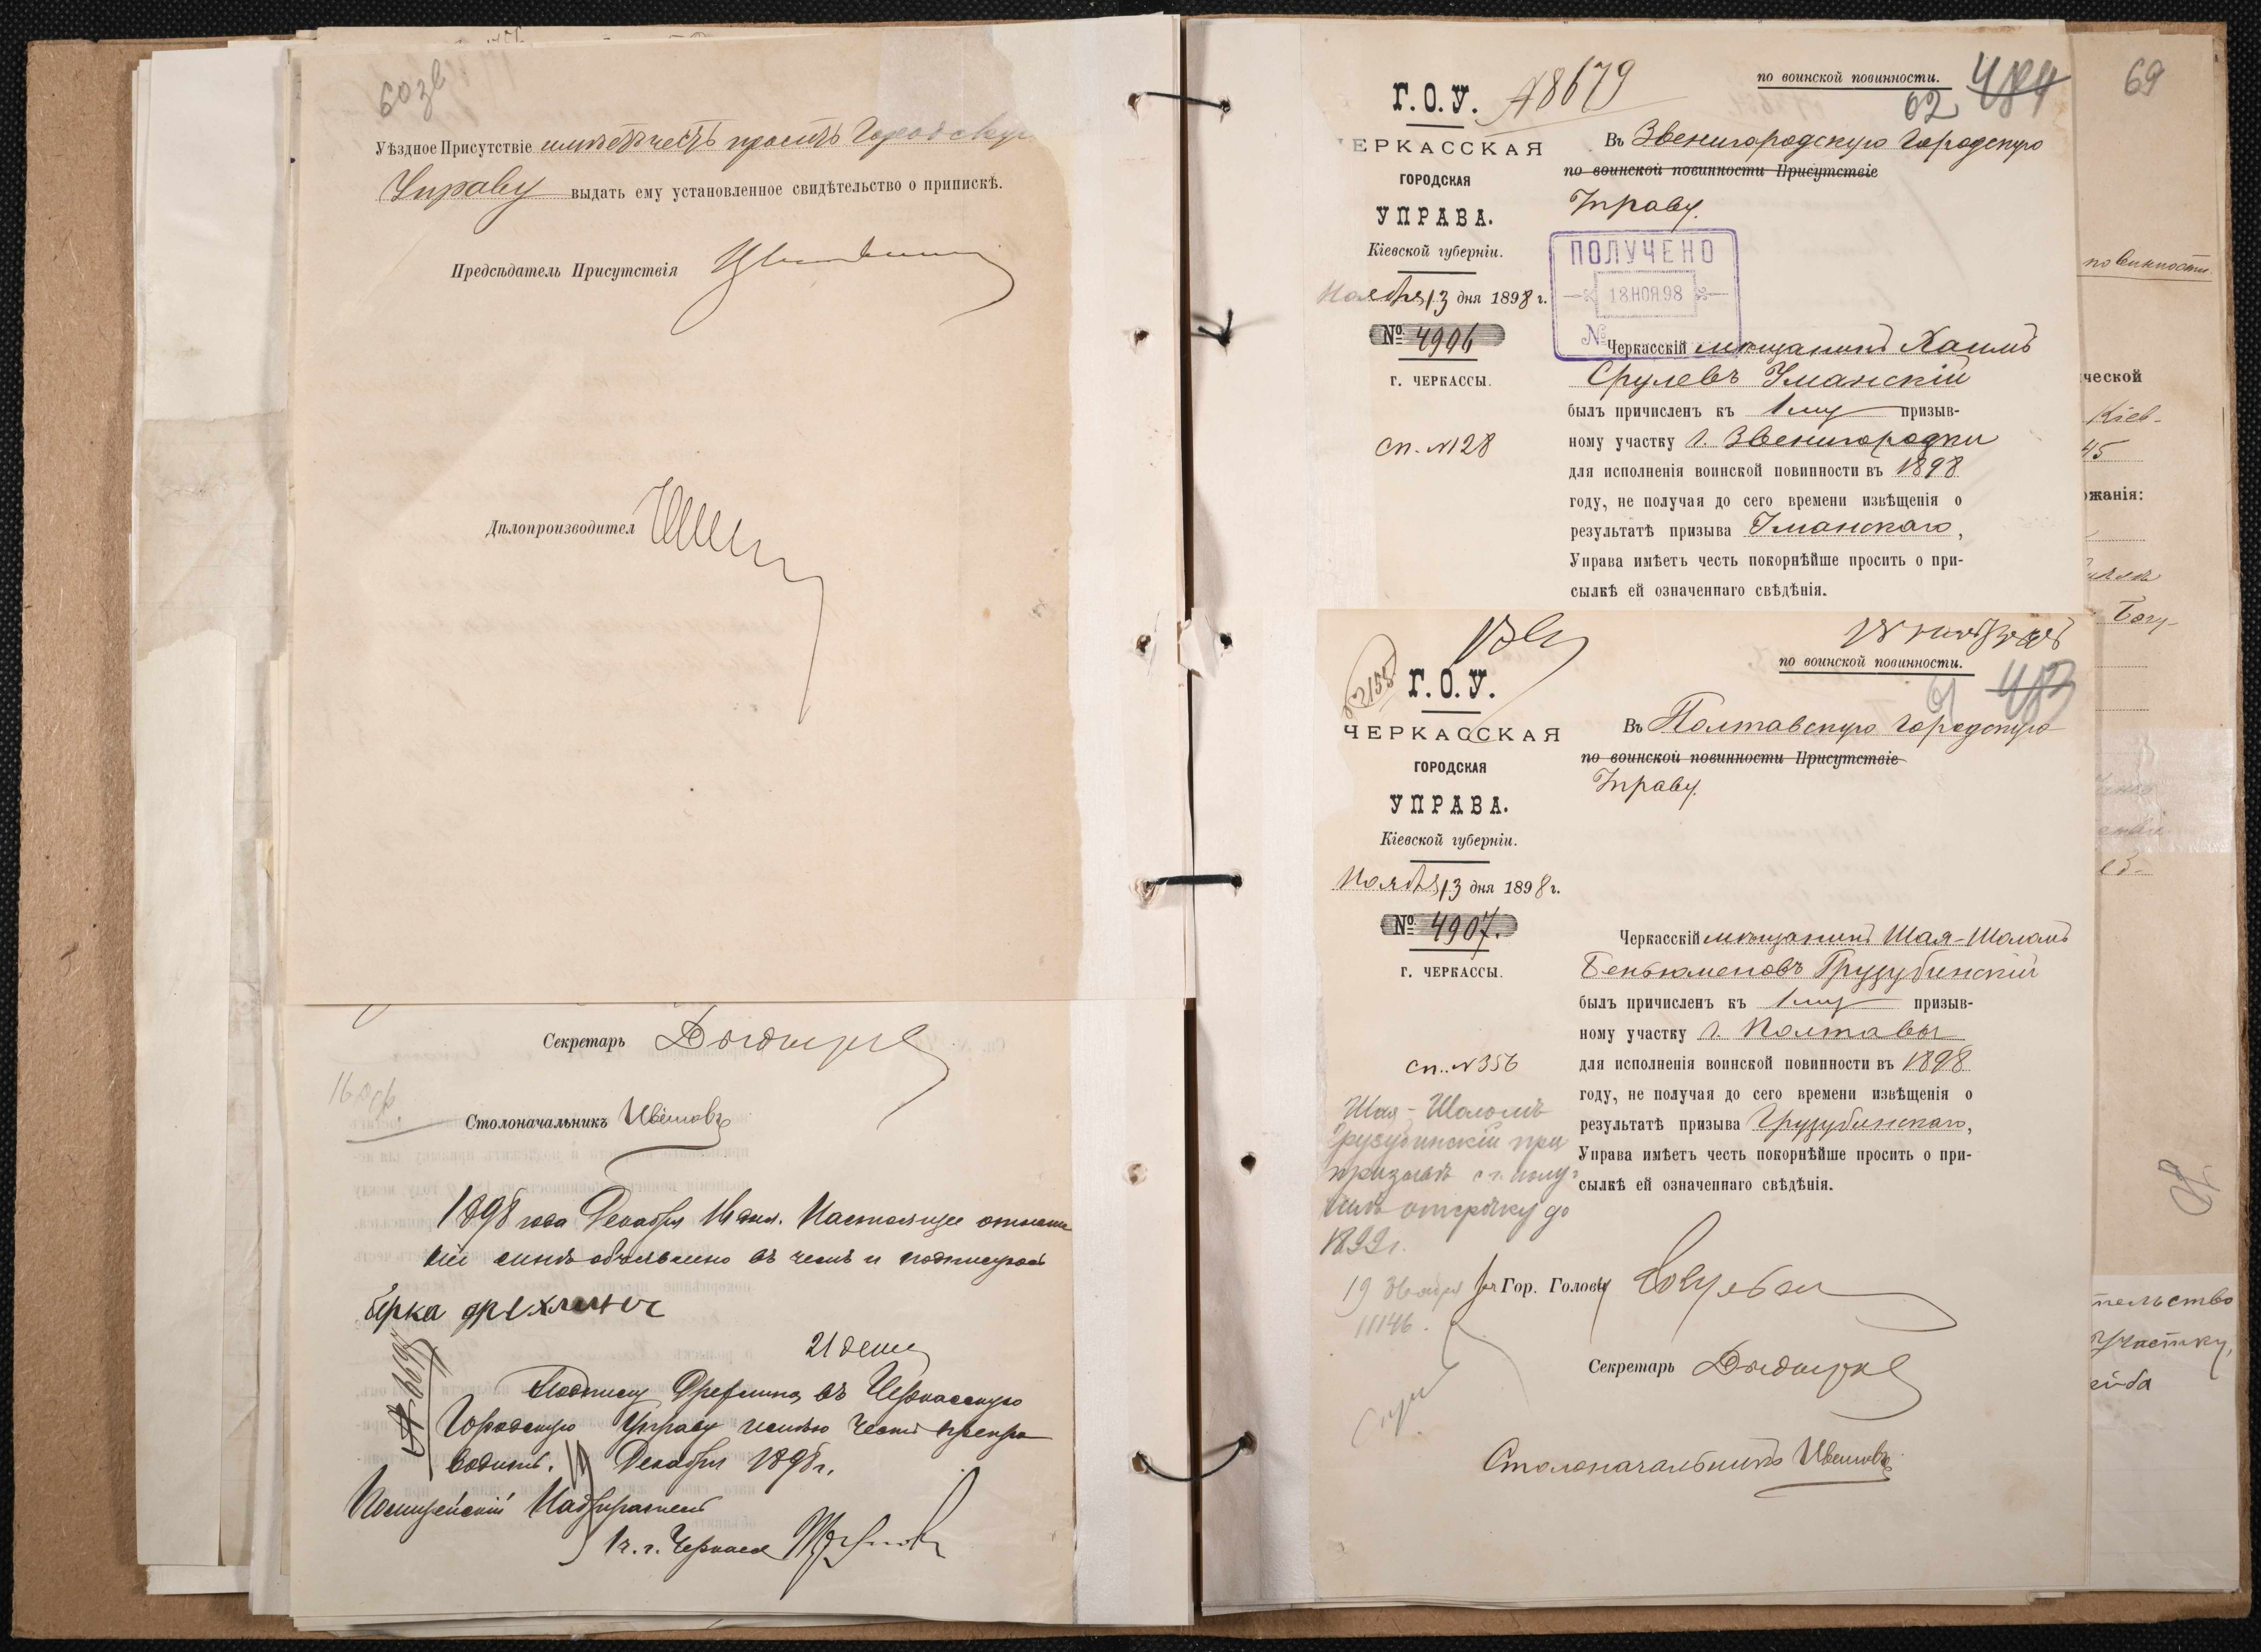 603б
Уѣздное Присутствіе имѣетъ честь проситъ Городскую
Управу выдать ему установленное свидѣтельство о припискѣ.
Предсѣдатель Присутствія
Дѣлопроизводител
Секретарь
Столоначальникъ Ивашовъ
1898 года Декабря 16 дня. Настоящее отноше
ніе мнѣ объявлено въ чемъ и подписуюсь
берка
21 дек
Подписку въ Черкасскую
Городскую Управу имѣю честь препро
водить. Декабря 1898 г.
Полицейскій Надзиратель
1 ч. г. Черкасъ
Г. О. У.
№ 8679
по воинской повинности.
484
62
ЧЕРКАССКАЯ
ГОРОДСКАЯ
УПРАВА.
Кіевской губерніи.
Ноября 13 дня 1898 г.
№ 4906
г. ЧЕРКАССЫ.
сп. №128
Въ Звенигородскую Городскую
по воинской повинности Присутствіе
Управу.
ПОЛУЧЕНО
18 НОЯ 98
№
Черкасскій мѣщанинъ Хаимъ
Срулевъ Уманскій
былъ причисленъ къ 1му призыв-
ному участку г. Звенигородки
для исполненія воинской повинности въ 1898
году, не получая до сего времени извѣщенія о
результатѣ призыва Уманскаго,
Управа имѣетъ честь покорнѣйше просить о при-
сылкѣ ей означеннаго свѣдѣнія.
18 Ноября
по воинской повинности.
61
483
Г. О. У.
ЧЕРКАССКАЯ
ГОРОДСКАЯ
УПРАВА.
Кіевской губерніи.
Ноября 13 дня 1898 г.
№ 4907.
г. ЧЕРКАССЫ.
сп. №356
Въ Полтавскую Городскую
по воинской повинности Присутствіе
Управу.
Черкасскій мѣщанинъ Шая-Шоломъ
Беньюменовъ Грузубинскій
былъ причисленъ къ 1му призыв-
ному участку г. Полтавы
для исполненія воинской повинности въ 1898
году, не получая до сего времени извѣщенія о
результатѣ призыва Грузубинскаго,
Управа имѣетъ честь покорнѣйше просить о при-
сылкѣ ей означеннаго свѣдѣнія.
Шая-Шоломъ
Грузубинскій при
призывѣ с. г. полу-
чилъ отсрочку до
1899 г.
19 Ноября
11146.
За Гор. Голову
Секретарь
Столоначальникъ Ивашовъ
69
повинности
ческой
Кіев-
45
жанія:
Богу-
тельство
участку,